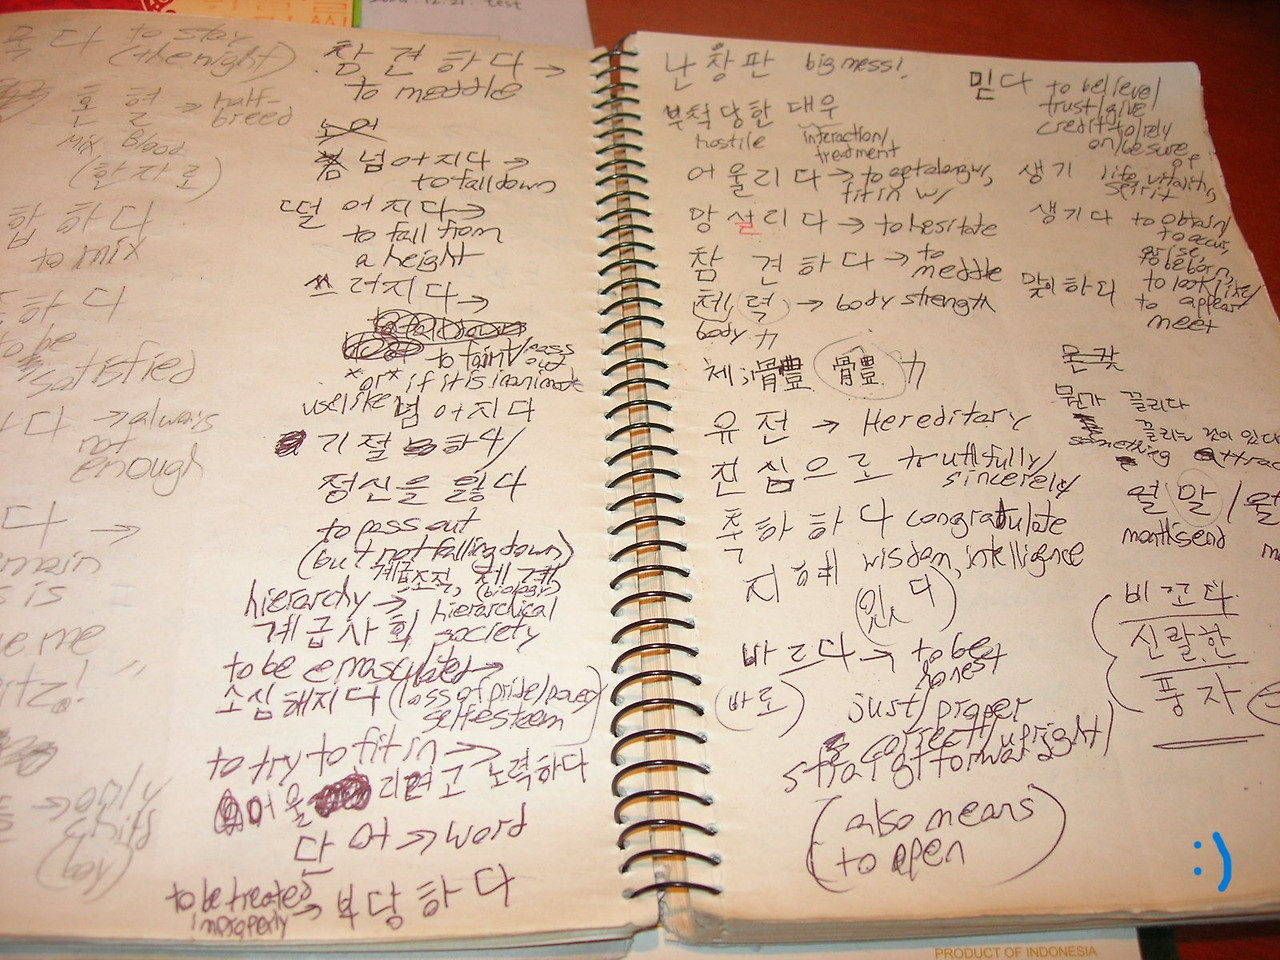 2004.12.21. test
묵다 to stay
(the night)
혼혈 → half-
breed
MIX Blood
(한자로)
합하다
to mix
하다
to be
satisfied
다 → always
not
enough
다 →
main
is
me
itz! "
→ only
child
(boy)
참견하다 →
to meddle
넘어지다 →
to fall down
떨어지다 →
to fall from
a height
쓰러지다 →
to faint/pass
out
*or* if it is inanimate
use like 넘어지다
기절하다/
정신을 잃다
to pass out
(but not falling down)
계급조직, 체계
(biology)
hierarchy → hierarchical
계급사회 society
to be emasculated →
소심해지다 (loss of pride/power/
selfesteem)
to try to fit in →
어울리려고 노력하다
단어 → word
to be treated
improperly → 부당하다
난장판 big mess!
부적당한 대우
hostile interaction/
treatment
어울리다 → to get along w,
fit in w/
망설리다 → to hesitate
참견하다 → to
meddle
체력 → body strength
body 力
체; 骨豊 骨豊 力
유전 → Hereditary
진심으로 truthfully/
sincerely
축하하다 congratulate
지혜 wisdom, intelligence
(있다)
바르다 → to be
honest
(바로) just/proper
correct/upright/
straightforward
(also means
to open)
믿다 to believe/
trust/give
credit to/rely
on/be sure
of
생기 life, vitality,
spirit
생기다 to obtain/
to occur,
arise,
to be born,
to look like/
to appear
맞이하다 meet
뭔가 끌리다
끌리는 것이 있다
something attrac
월말/월
month's end m
비꼬다
신랄한
풍자
:)
PRODUCT OF INDONESIA